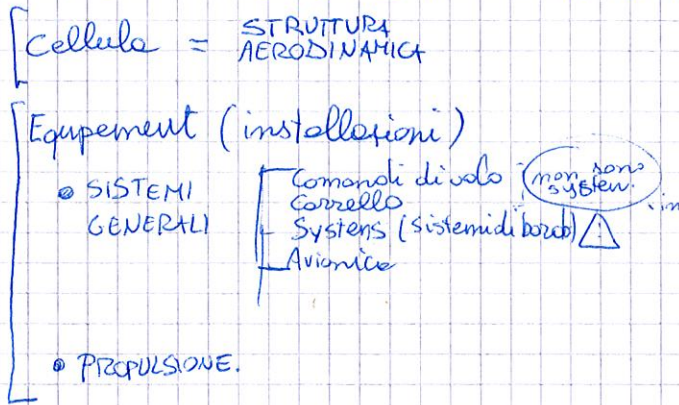 Cellula = STRUTTURA
AERODINAMICA
Equpement (installazioni)
• SISTEMI
GENERALI
Comandi di volo
non sono
system.
Carrello
Systems (sistemi di bordo)
Avionica
• PROPULSIONE.